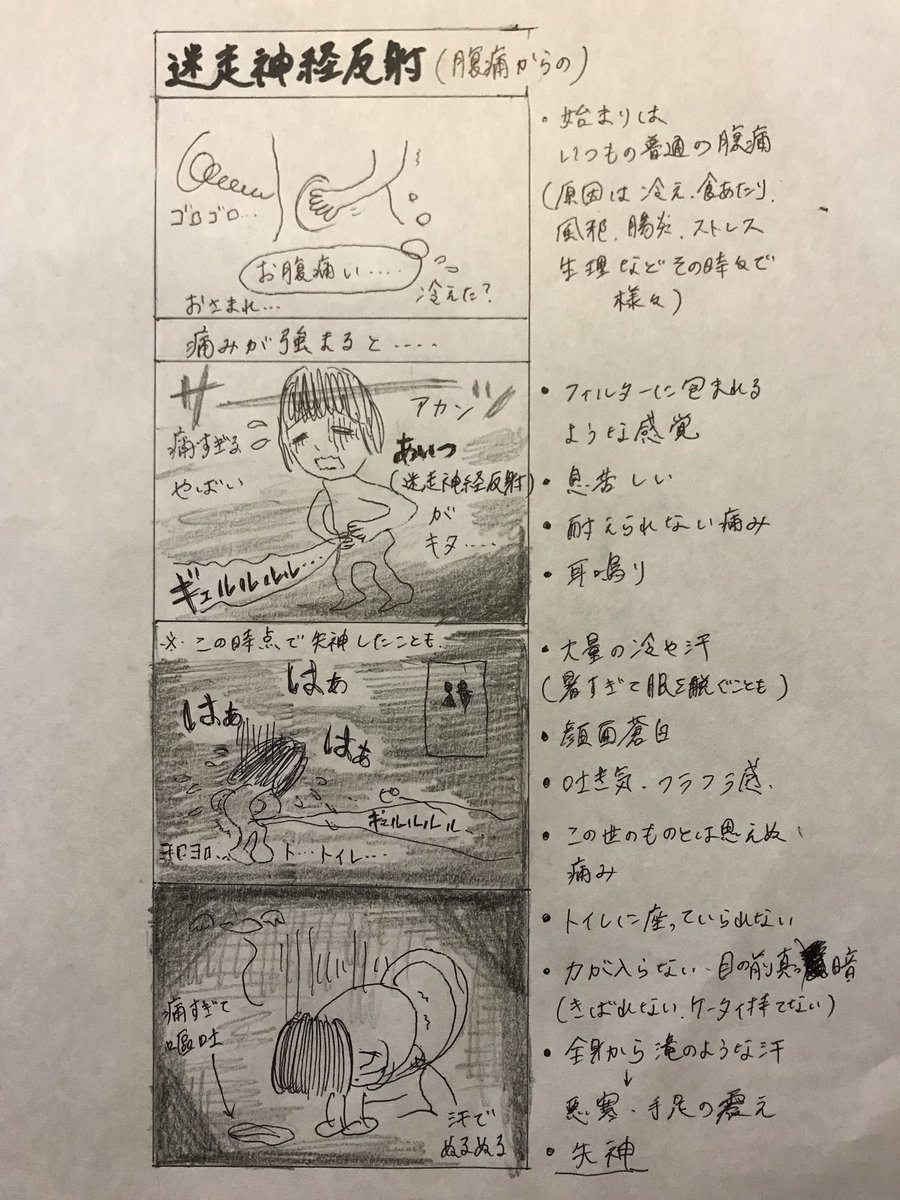 迷走神経反射(腹痛からの)
ゴロゴロ…
お腹痛い……
おさまれ…
冷えた?
・始まりは
いつもの普通の腹痛
(原因は冷え、食あたり、
風邪、腸炎、ストレス
生理などその時々で
様々)
痛みが強まると……
サ
ーッ
痛すぎる
やばい
アカン
あいつ
(迷走神経反射)
が
キタ……
ギュルルルル…
・フィルターに包まれる
ような感覚
・息苦しい
・耐えられない痛み
・耳鳴り
※この時点で失神したことも
はぁ
はぁ
はぁ
ピー
ギュルルルル…
ヨロヨロ…
ト…トイレ…
・大量の冷や汗
(暑すぎて服を脱ぐことも)
・顔面蒼白
・吐き気、フラフラ感、
・この世のものとは思えぬ
痛み
痛すぎて
嘔吐
汗で
ぬるぬる
・トイレに座っていられない
・力が入らない・目の前真っ暗
(きばれない、ケータイ持てない)
・全身から滝のような汗
↓
悪寒・手足の震え
・失神